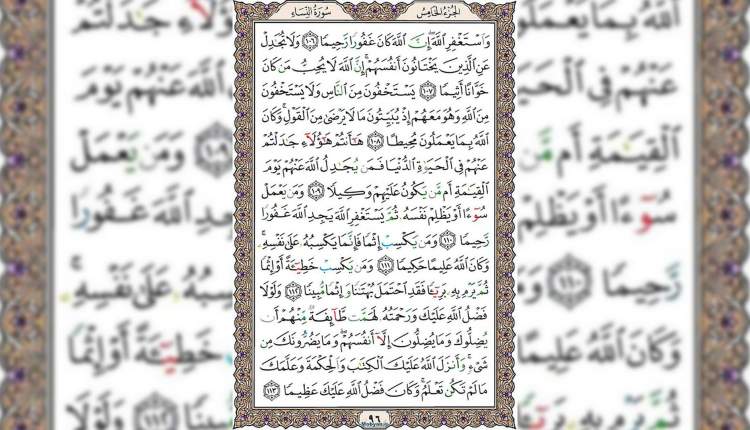 الجزء الخامس سورة النساء
وَاسْتَغْفِرِ اللَّهَ إِنَّ اللَّهَ كَانَ غَفُورًا رَحِيمًا ١٠٦ وَلَا تُجَادِلْ
عَنِ الَّذِينَ يَخْتَانُونَ أَنْفُسَهُمْ إِنَّ اللَّهَ لَا يُحِبُّ مَنْ كَانَ
خَوَّانًا أَثِيمًا ١٠٧ يَسْتَخْفُونَ مِنَ النَّاسِ وَلَا يَسْتَخْفُونَ
مِنَ اللَّهِ وَهُوَ مَعَهُمْ إِذْ يُبَيِّتُونَ مَا لَا يَرْضَى مِنَ الْقَوْلِ وَكَانَ
اللَّهُ بِمَا يَعْمَلُونَ مُحِيطًا ١٠٨ هَا أَنْتُمْ هَؤُلَاءِ جَادَلْتُمْ
عَنْهُمْ فِي الْحَيَاةِ الدُّنْيَا فَمَنْ يُجَادِلُ اللَّهَ عَنْهُمْ يَوْمَ
الْقِيَامَةِ أَمْ مَنْ يَكُونُ عَلَيْهِمْ وَكِيلًا ١٠٩ وَمَنْ يَعْمَلْ
سُوءًا أَوْ يَظْلِمْ نَفْسَهُ ثُمَّ يَسْتَغْفِرِ اللَّهَ يَجِدِ اللَّهَ غَفُورًا
رَحِيمًا ١١٠ وَمَنْ يَكْسِبْ إِثْمًا فَإِنَّمَا يَكْسِبُهُ عَلَى نَفْسِهِ
وَكَانَ اللَّهُ عَلِيمًا حَكِيمًا ١١١ وَمَنْ يَكْسِبْ خَطِيئَةً أَوْ إِثْمًا
ثُمَّ يَرْمِ بِهِ بَرِيئًا فَقَدِ احْتَمَلَ بُهْتَانًا وَإِثْمًا مُبِينًا ١١٢ وَلَوْلَا
فَضْلُ اللَّهِ عَلَيْكَ وَرَحْمَتُهُ لَهَمَّتْ طَائِفَةٌ مِنْهُمْ أَنْ
يُضِلُّوكَ وَمَا يُضِلُّونَ إِلَّا أَنْفُسَهُمْ وَمَا يَضُرُّونَكَ مِنْ
شَيْءٍ وَأَنْزَلَ اللَّهُ عَلَيْكَ الْكِتَابَ وَالْحِكْمَةَ وَعَلَّمَكَ
مَا لَمْ تَكُنْ تَعْلَمُ وَكَانَ فَضْلُ اللَّهِ عَلَيْكَ عَظِيمًا ١١٣
٩٦